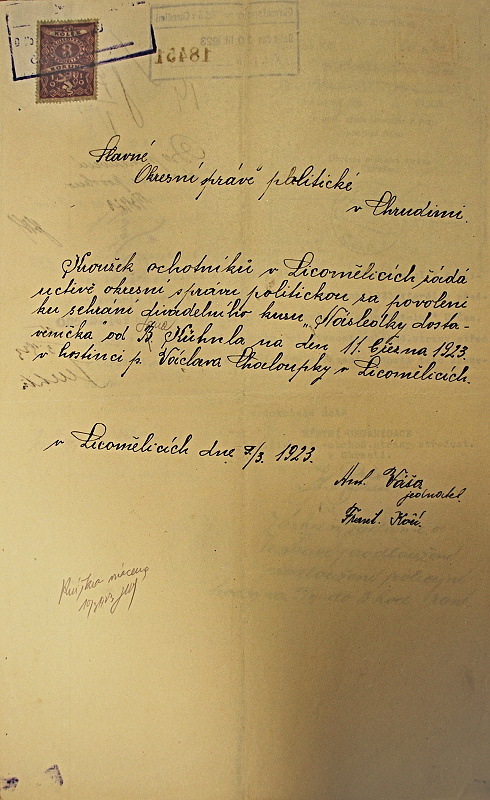 Slavné
Okresní právě politické
v Chrudimi.
Kroužek ochotníků v Licomělicích žádá
uctivě okresní správu politickou za povolení
ku sehrání divadelního kusu „Následky dosta-
veníčka" od B. Kühnla na den 11. března 1923.
v hostinci p. Václava Chaloupky v Licomělicích.
v Licomělicích dne 7/3. 1923.
Ant. Váša
jednatel.
Frant. Kočí.
18451